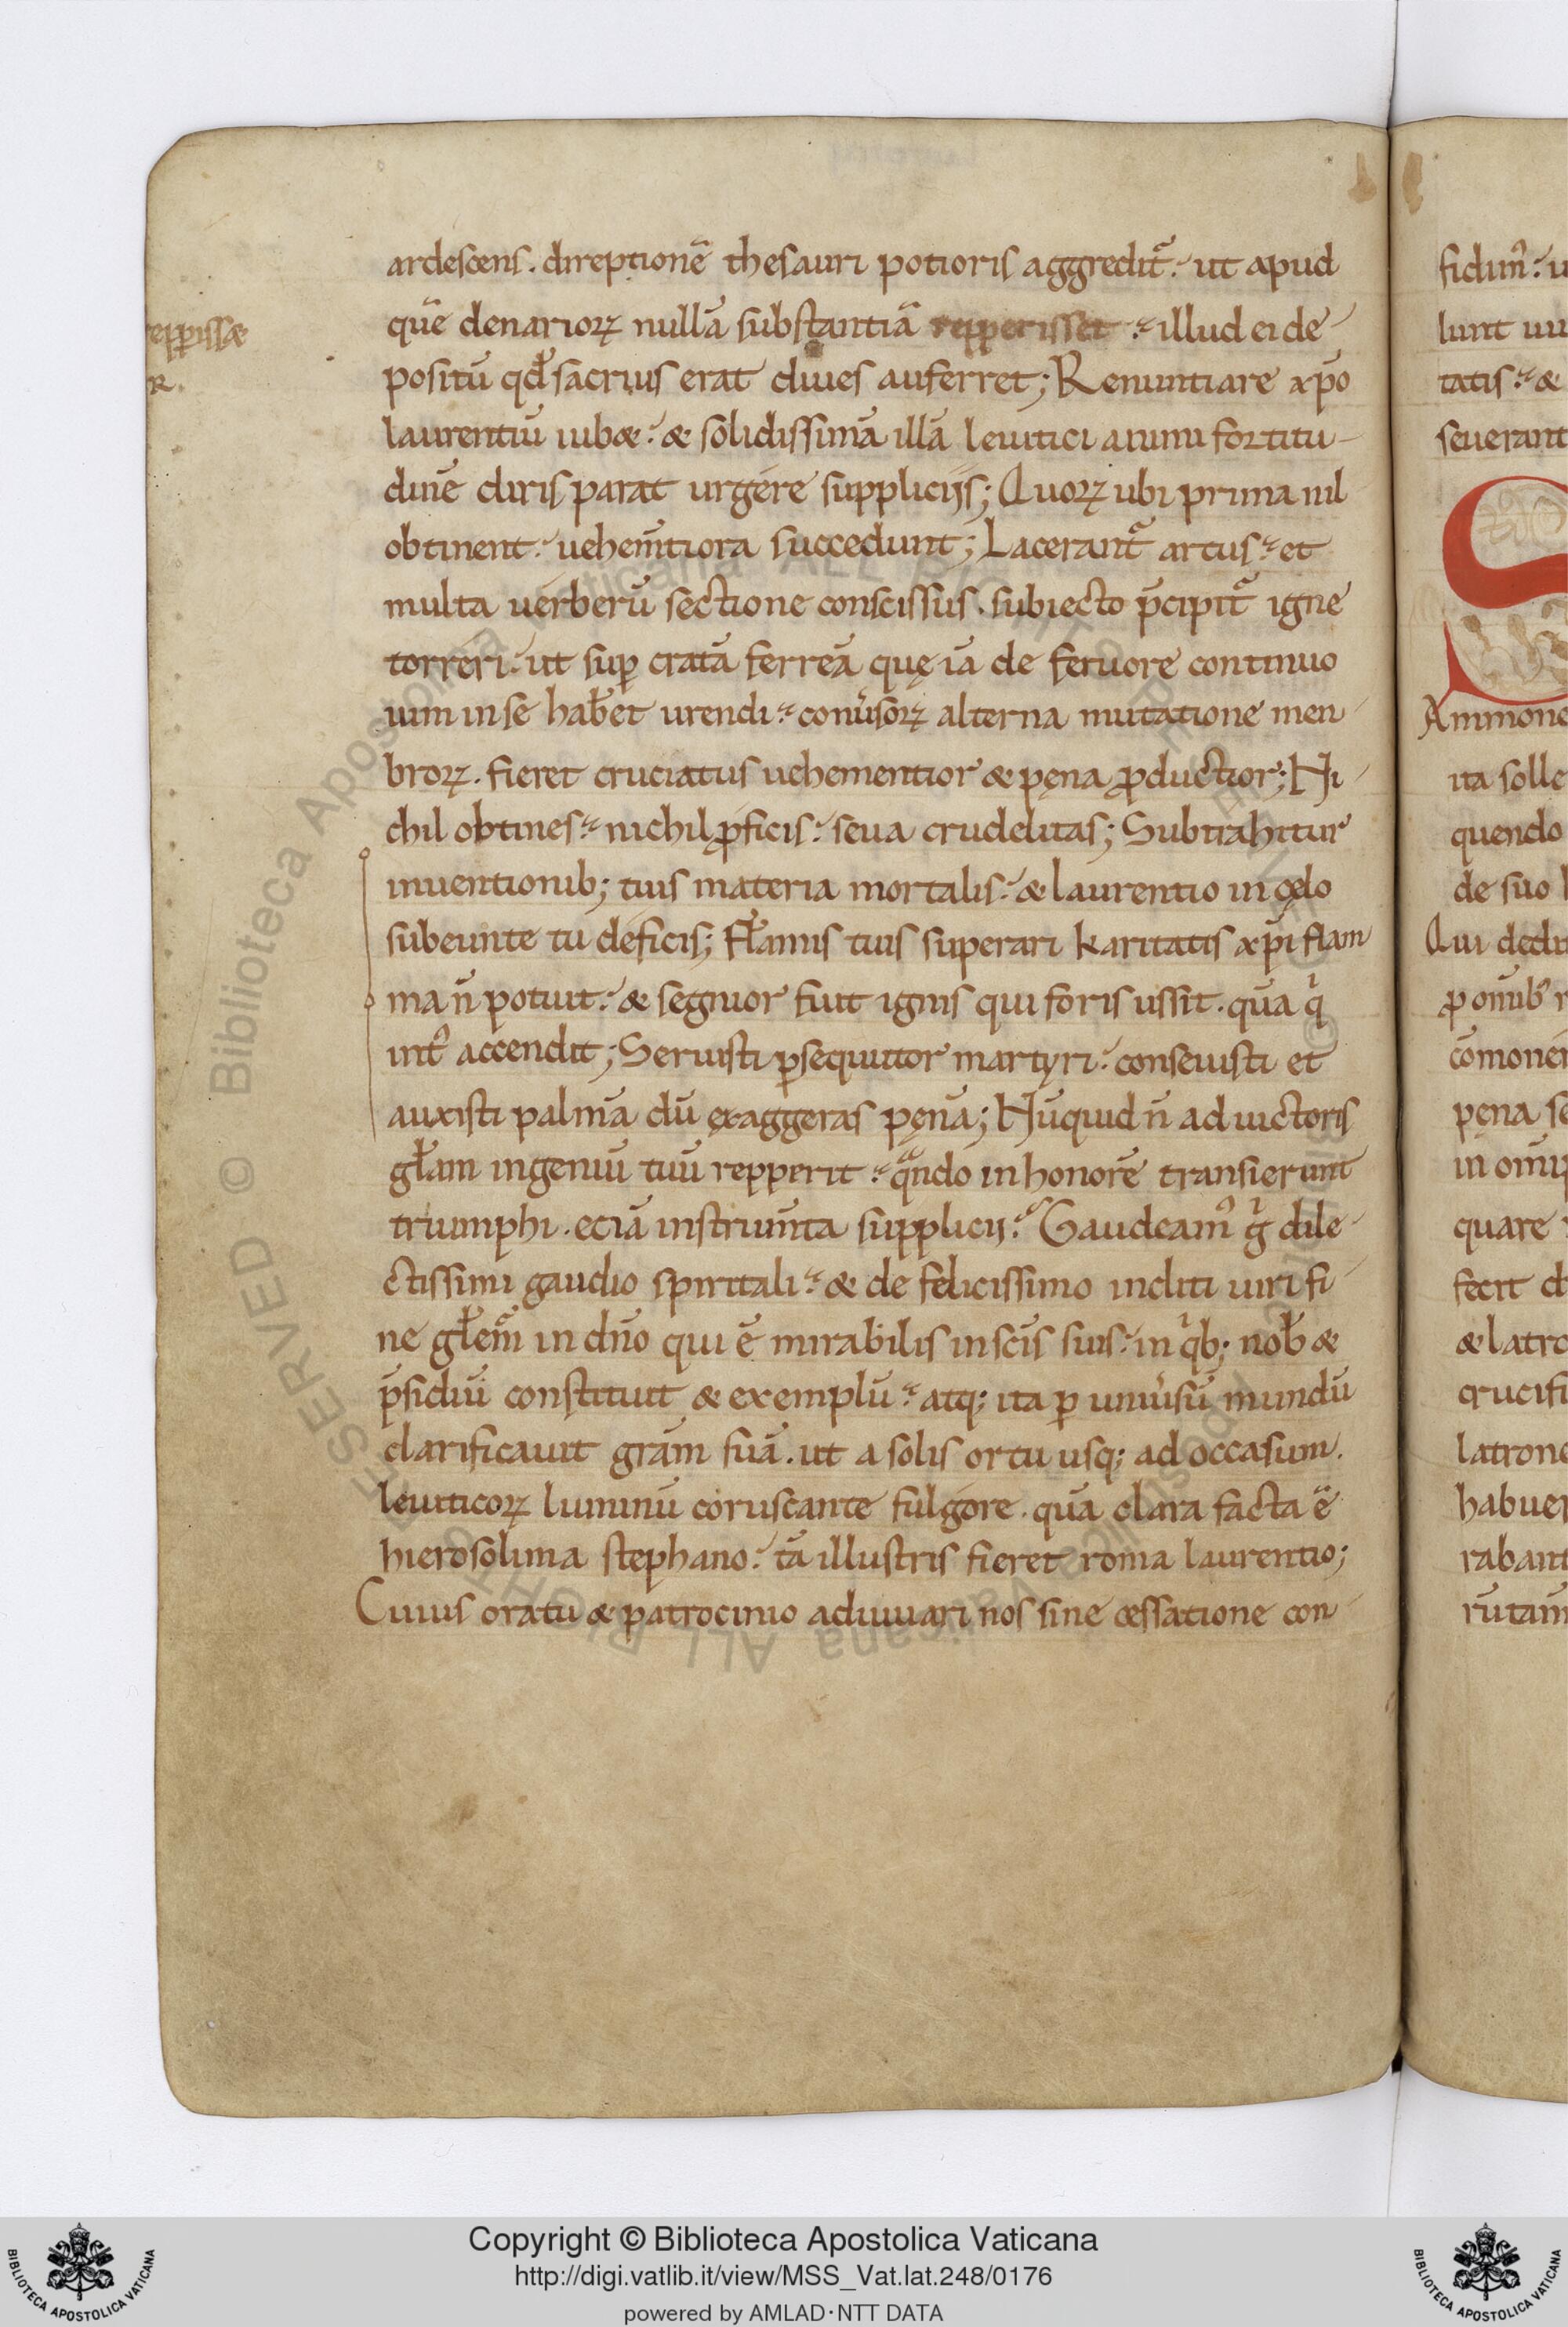 ardescens. direptionē thesauri potioris aggredit᷑. ut apud
quē denarioꝝ nullā substantiā repperisset. illud ei de
positū qđ sacrius erat diues auferret; Renuntiare xp̄o
laurentiū iub&. & solidissimā illā leuitici animi fortitu-
dinē diris parat urgere suppliciis; Quoꝝ ubi prima nil
obtinent. uehem̄tiora succedunt; Lacerant᷑ artus. et
multa uerberū sectione conscissus. subiecto p̄cipit᷑ igne
torreri. ut suꝑ cratā ferreā quę iā de feruore continuo
uim in se hab̄et urendi. conūsoꝝ alterna mutatione men
broꝝ. fieret cruciatus uehementior & pęna ꝓductior; Ni
chil obtines. nichil ꝓficis. seua crudelitas; Subtrahitur
inuentionib; tuis materia mortalis. & laurentio in cęlo
subeunte tu deficis; Flāmis tuis superari karitatis xp̄i flam
ma n̄ potuit. & segnior fuit ignis qui foris ussit. quā q̄
int᷑ accendit; Seruisti ꝑsequutor martyri. conseuisti et
auxisti palmā dū exaggeras pęnā; Nūquid n̄ ad uictoris
gł̄am ingeniū tuū repperit. qᷓndo in honorē transierunt
triumphi. eciā instrum̄ta supplicii. Gaudeam᷒ g̊ dile
ctissimi gaudio spiritali. & de felicissimo incliti uiri fi
ne gł̄em᷑ in dn̄o qui ē mirabilis in scīs suis. in qͥb; nob̄ &
p̄sidiū constituit & exemplū. atq; ita ꝑ uniūsū mundū
clarificauit grām suā. ut a solis ortu usq; ad occasum.
leuiticoꝝ luminū coruscante fulgore. quā clara facta ē
hierosolima stephano. tā illustris fieret roma laurentio;
Cuius oratu & patrocinio adiuuari nos sine cessatione con
epperiss&
R.
fidim᷒. u
lunt
tatis. &
seuerant
S
Ammone
ita solle
quendo
de suo
Qui dedi
ꝓ omīb᷒
cōmoner
pęna se
in omīp
quare
fecit
& latro
crucifi
latrone
habuer
rabant
rūtam
Copyright © Biblioteca Apostolica Vaticana
http://digi.vatlib.it/view/MSS_Vat.lat.248/0176
powered by AMLAD·NTT DATA
BIBLIOTECA APOSTOLICA VATICANA
BIBLIOTECA APOSTOLICA VATICANA